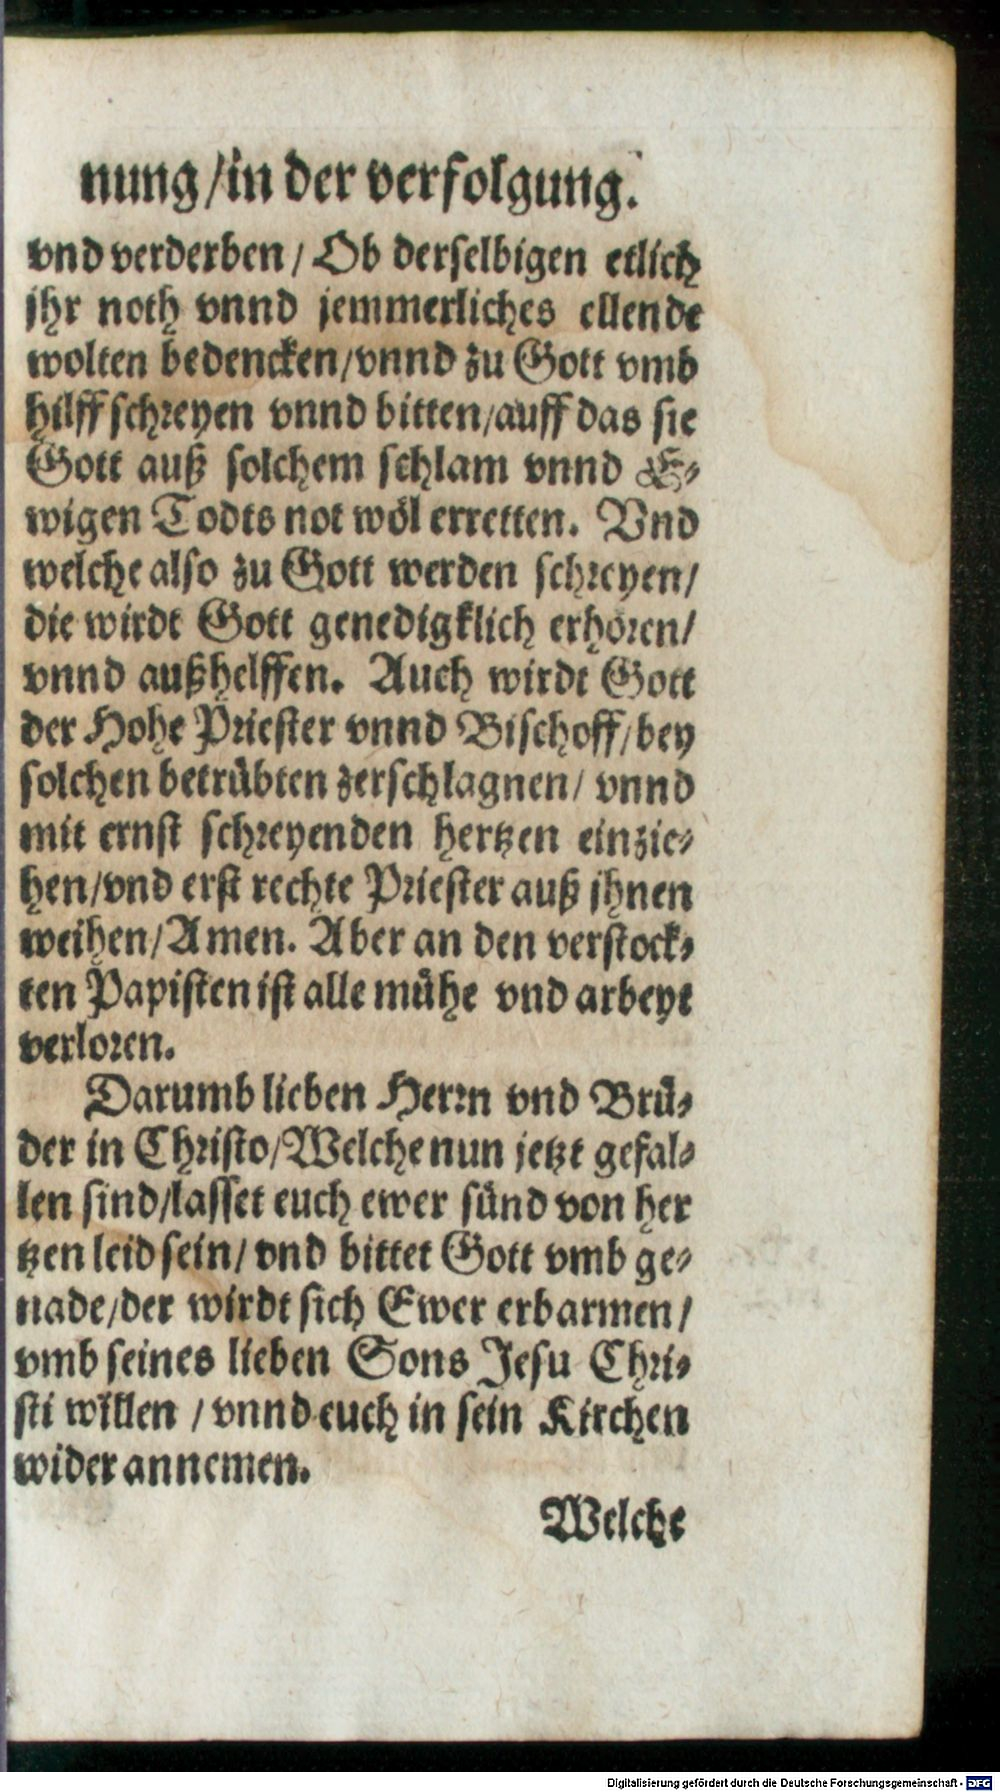 nung/in der verfolgung.
vnd verderben/ Ob derselbigen etlich
jhr noth vnnd jemmerliches ellende
wolten bedencken/vnnd zu Gott vmb
hilff schreyen vnnd bitten/auff das sie
Gott auß solchem schlam vnnd E-
wigen Todts not wöl erretten. Vnd
welche also zu Gott werden schreyen/
die wirdt Gott genedigklich erhören/
vnnd außhelffen. Auch wirdt Gott
der Hohe Priester vnnd Bischoff/bey
solchen betrübten zerschlagnen/ vnnd
mit ernst schreyenden hertzen einzie-
hen/vnd erst rechte Priester auß jhnen
weihen/Amen. Aber an den verstock-
ten Papisten ist alle mühe vnd arbeyt
verloren.
Darumb lieben Herrn vnd Brü-
der in Christo/Welche nun jetzt gefal-
len sind/lasset euch ewer sünd von her
tzen leid sein/ vnd bittet Gott vmb ge-
nade/der wirdt sich Ewer erbarmen/
vmb seines lieben Sons Jesu Chri-
sti willen / vnnd euch in sein Kirchen
wider annemen.
Welche
Digitalisierung gefördert durch die Deutsche Forschungsgemeinschaft - DFG